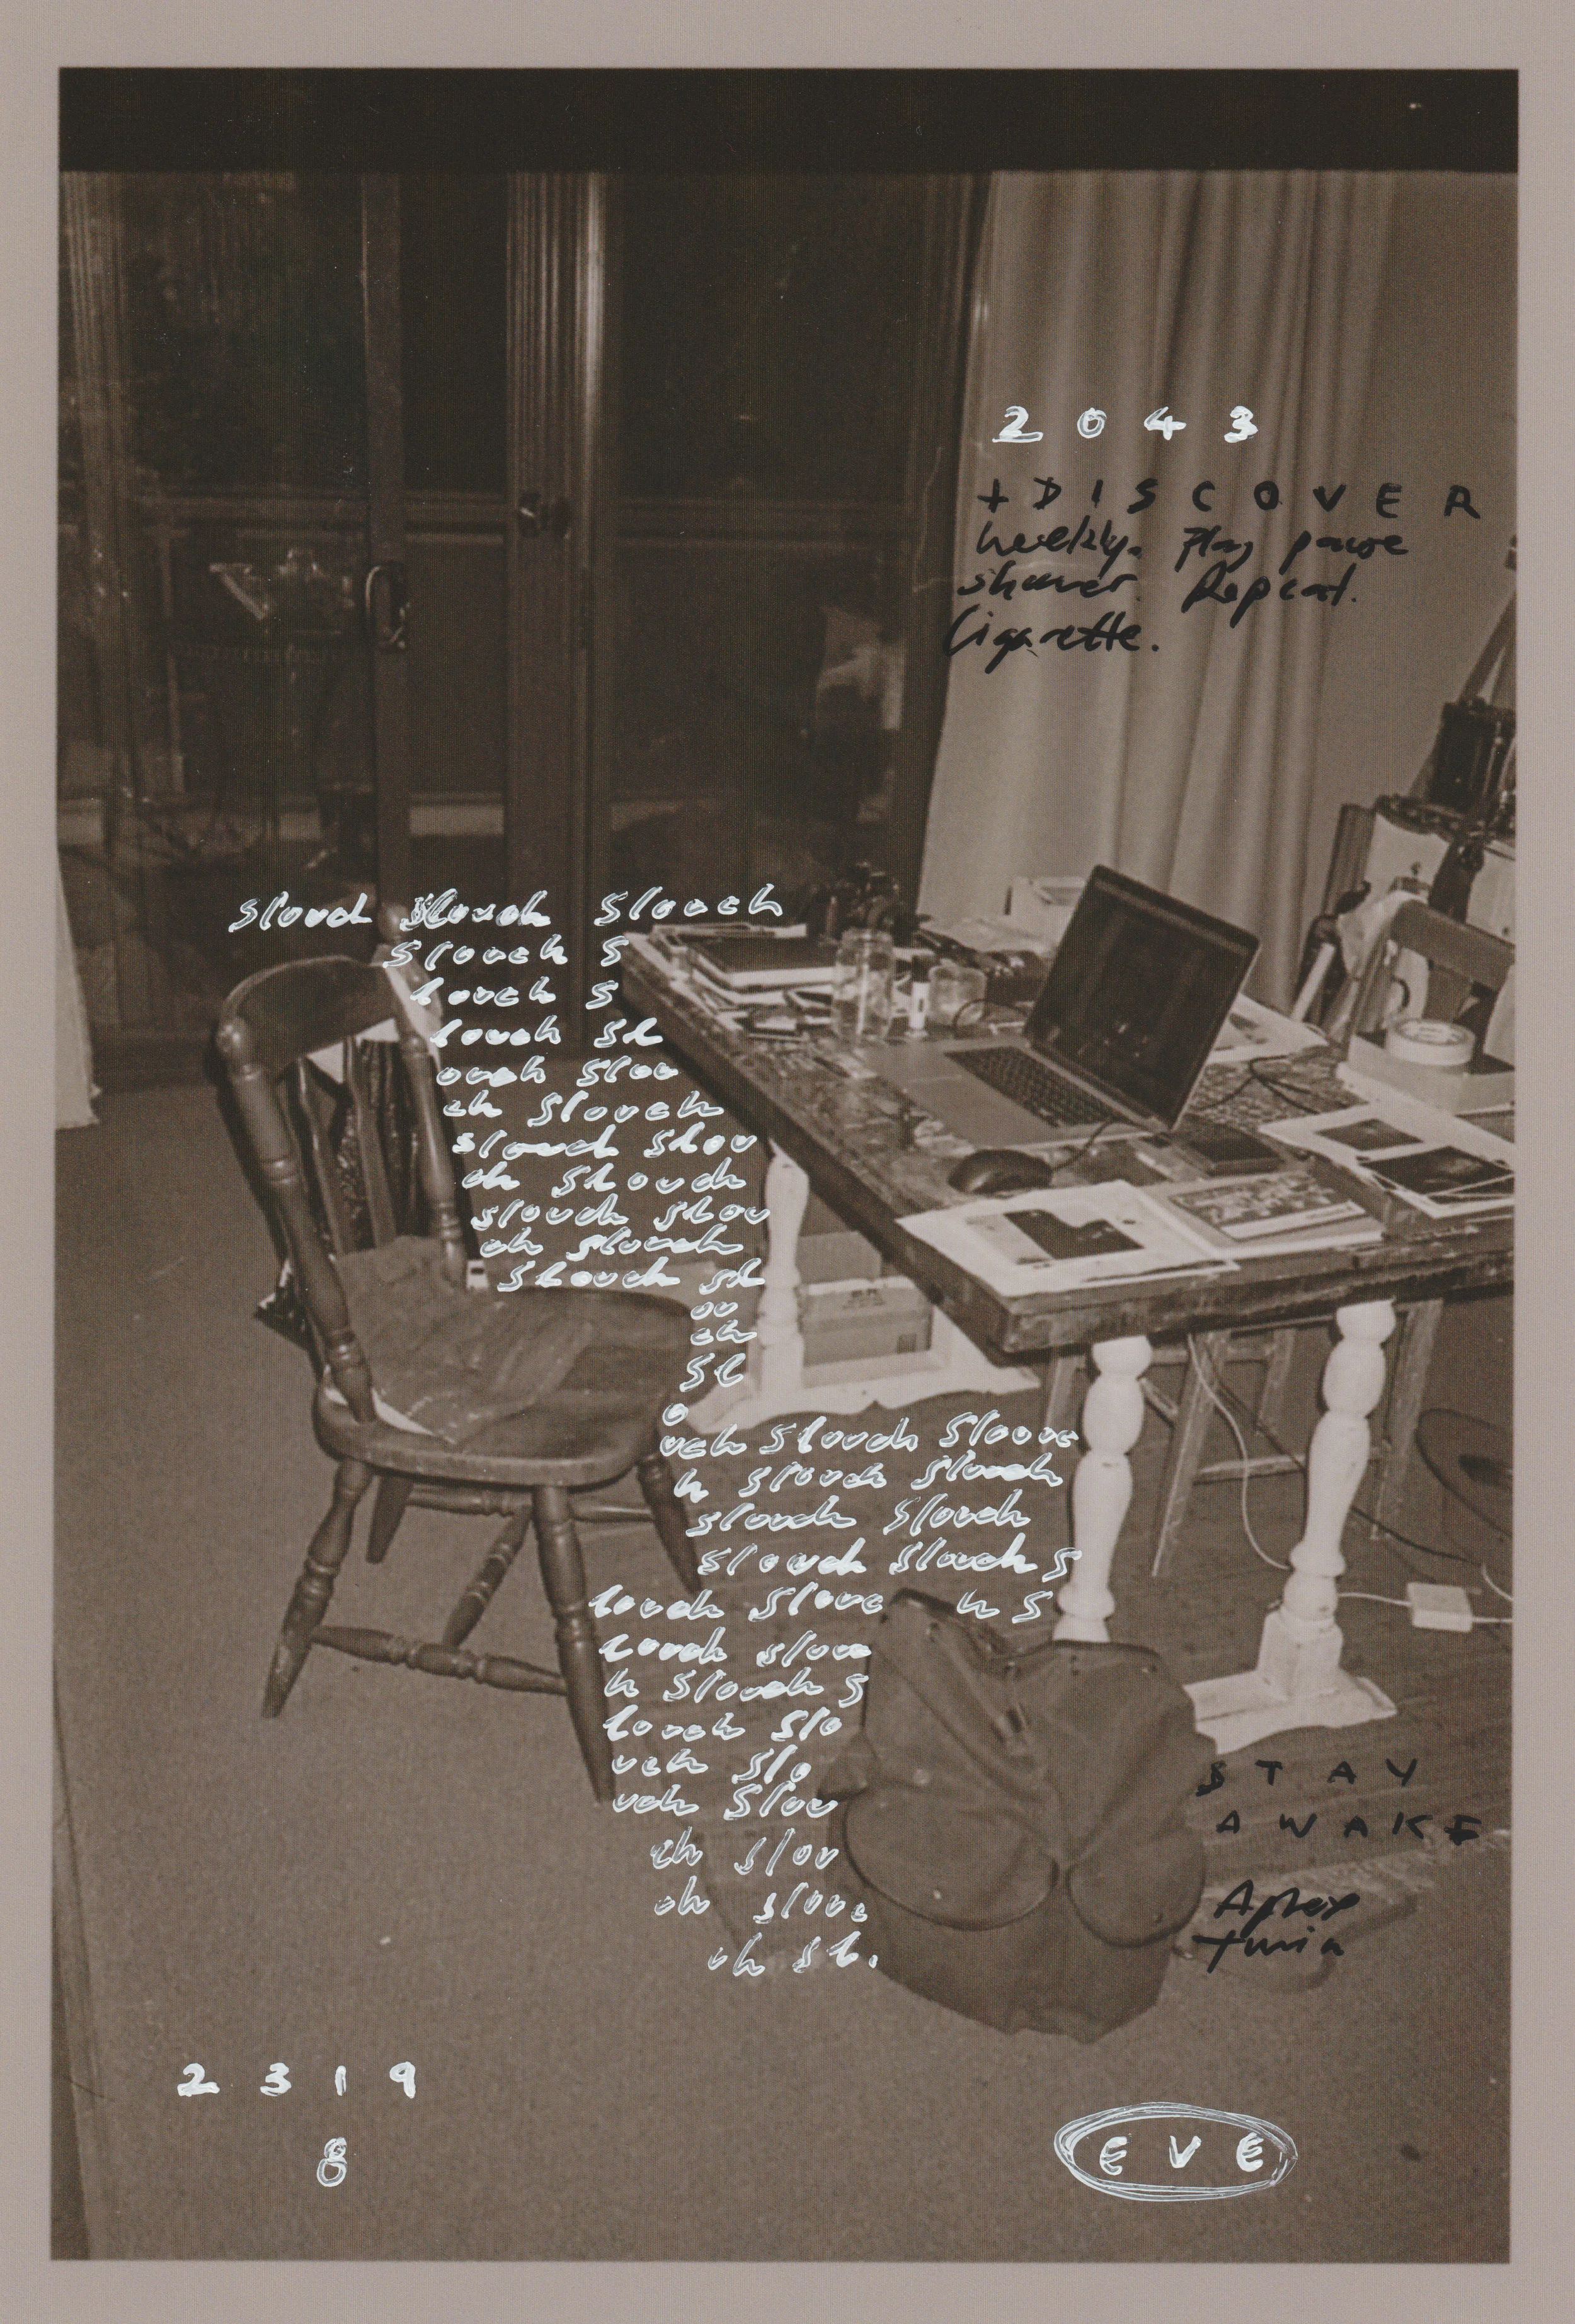 2 0 4 3
+ D I S C O V E R
weekly. Play pause
shower. Repeat.
Cigarette.
Slouch Slouch Slouch
Slouch S
louch S
louch Sl
ouch Slou
ch Slouch
slouch Slou
ch Slouch
slouch Slou
ch Slouch
Slouch sl
ou
ch
Sl
o
uch Slouch Slouc
h Slouch Slouch
slouch Slouch
slouch Slouch S
louch Slouc h S
louch slouc
h Slouch S
louch Slo
uch Slo
uch Slou
ch slou
ch slouc
h sl.
S T A Y
A W A K E
Aphex
twin
2 3 1 9
8
E V E